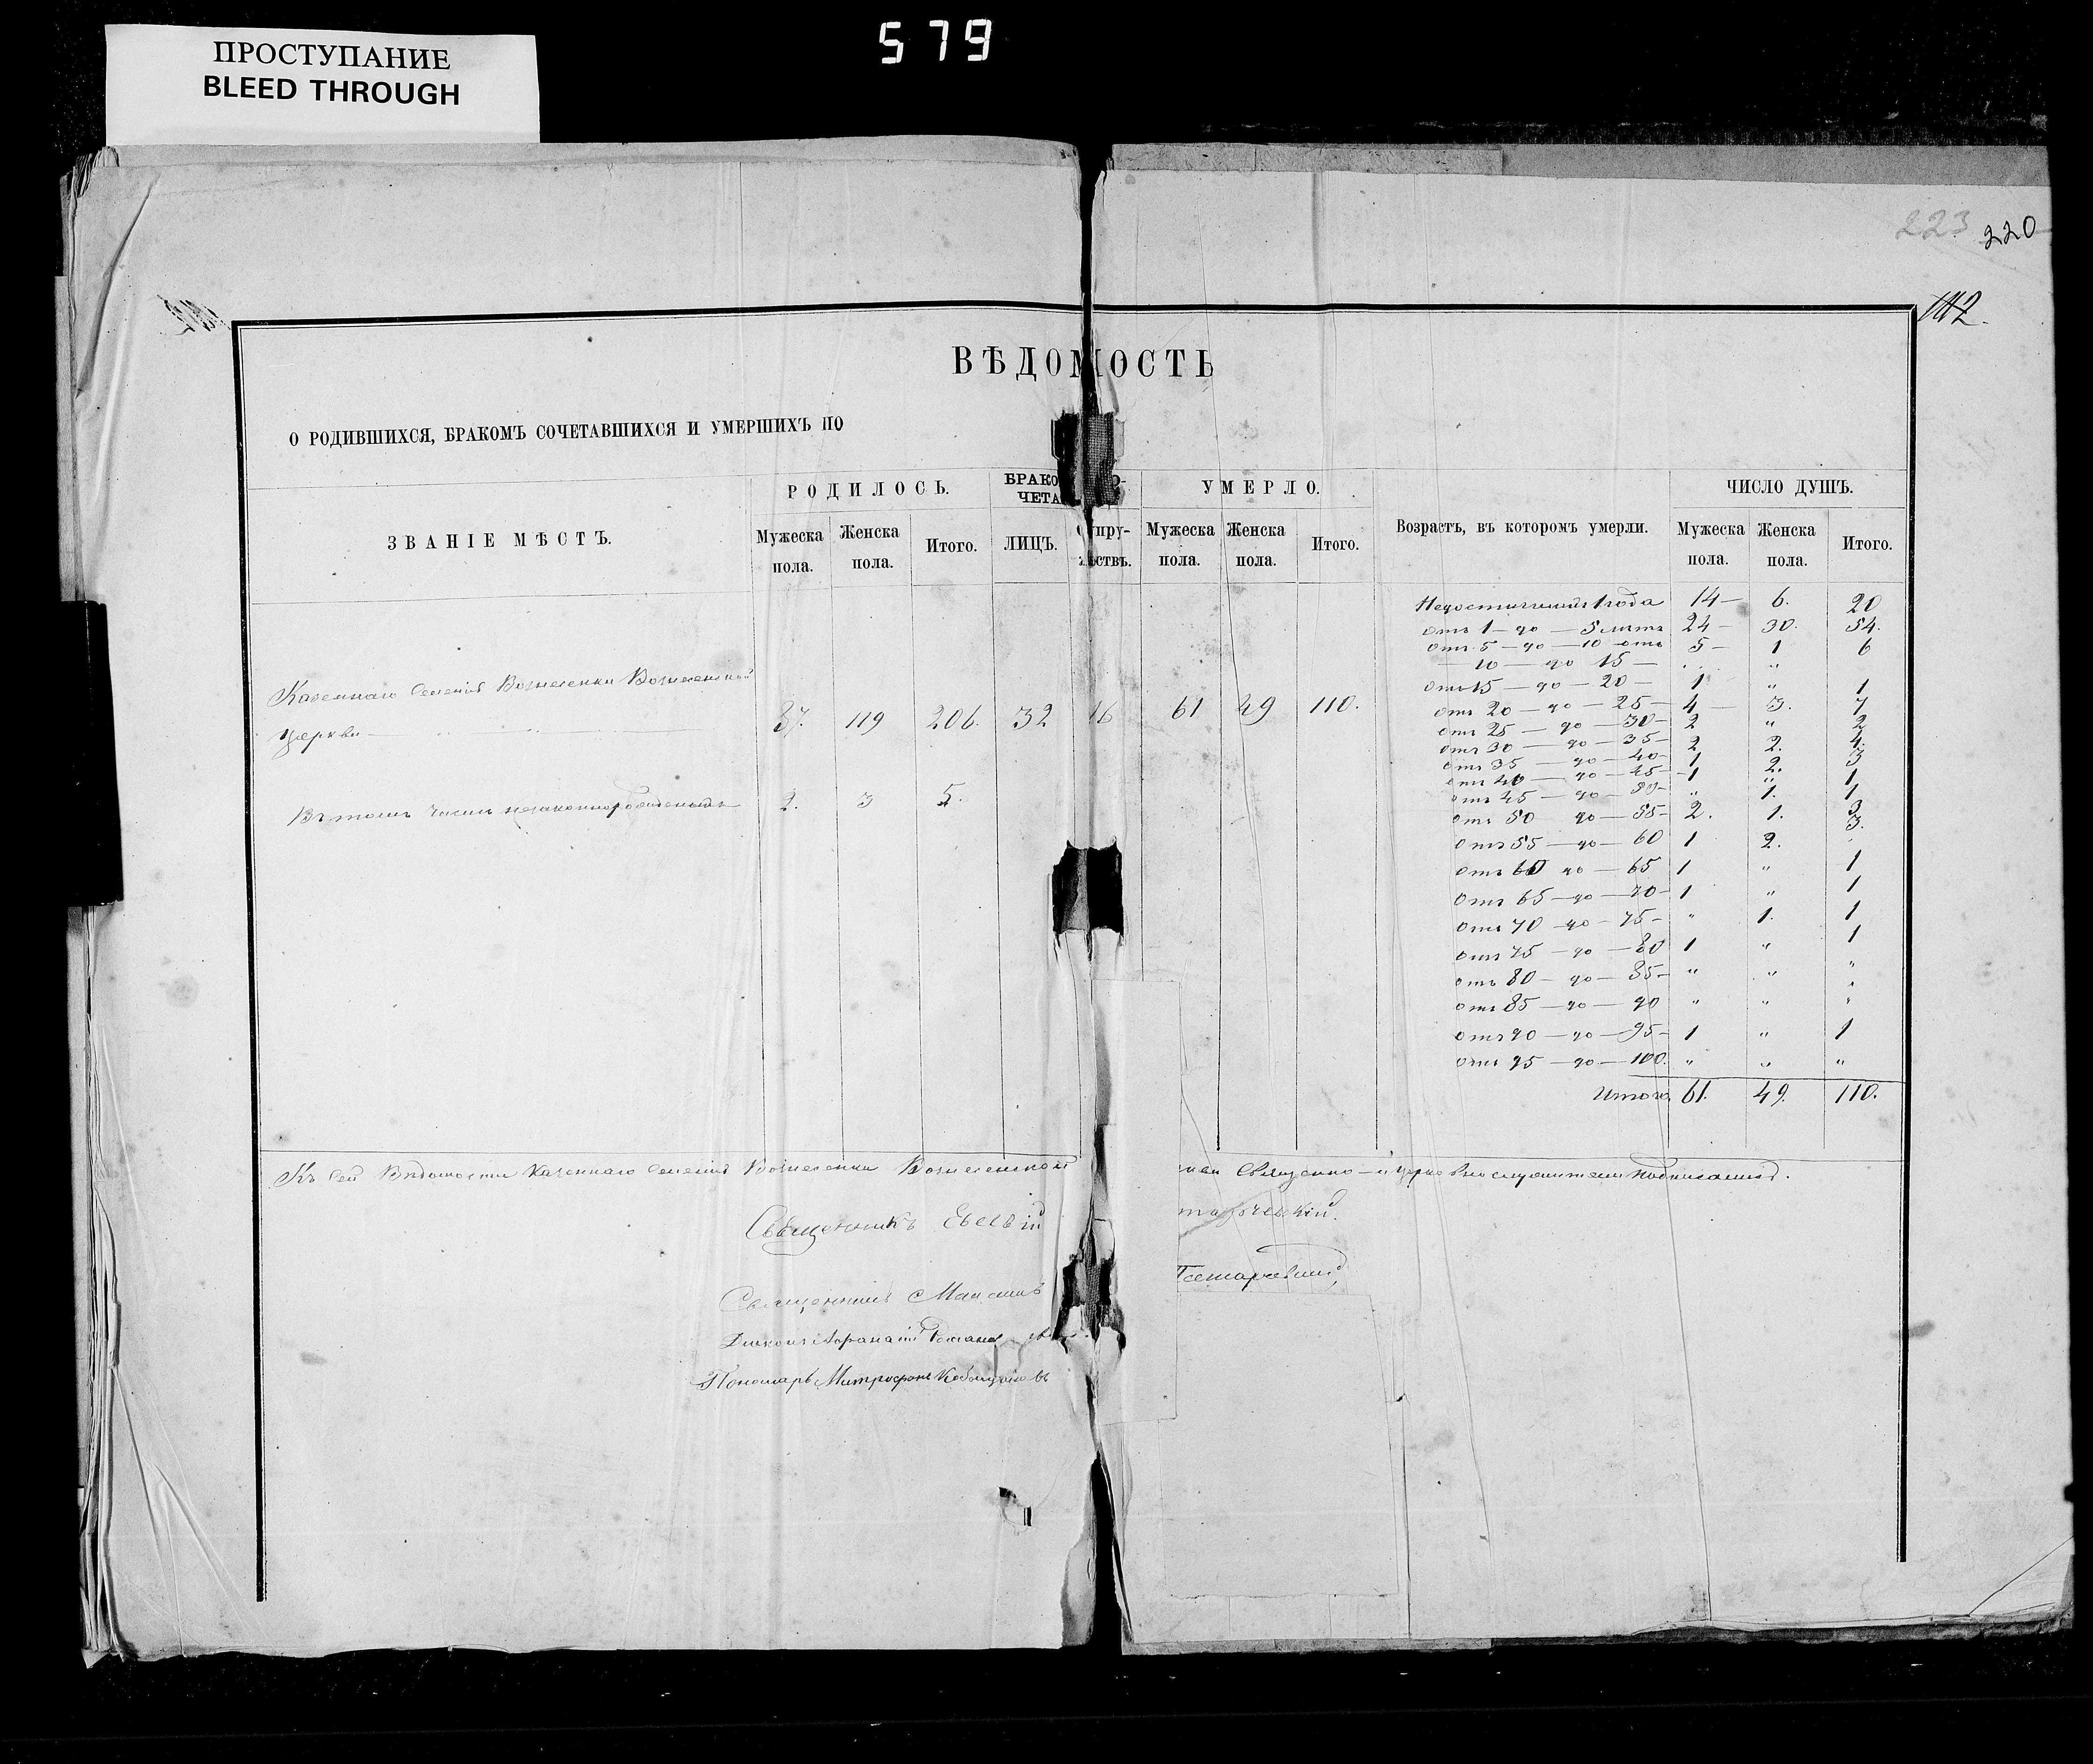 ПРОСТУПАНИЕ
BLEED THROUGH
579
223 220
ВѢДОМОСТЬ
О РОДИВШИХСЯ, БРАКОМЪ СОЧЕТАВШИХСЯ И УМЕРШИХЪ ПО
ЗВАНІЕ МѢСТЪ. РОДИЛОСЬ. БРАКО ЧЕТА УМЕРЛО. Возрастъ, въ которомъ умерли. ЧИСЛО ДУШЪ.
Мужеска пола. Женска пола. Итого. ЛИЦЪ. Мужеска пола. Женска пола. Итого. Мужеска пола. Женска пола. Итого.
Недостигшихъ 1 года 14 — 6. 20
отъ 1 — до — 5 лѣтъ 24 — 30. 54.
отъ 5 — до — 10 5 — 1 6
— 10 — до 15 — " "
отъ 15 — до — 20 — 1 " 1
отъ 20 — до — 25 — 4 — 3. 7
отъ 25 — до — 30 — 2 " 2
отъ 30 — до — 35 — 2 2. 4.
отъ 35 — до — 40 — 1 2. 3
отъ 40 — до — 45 — 1 " 1
отъ 45 — до — 50 — " 1. 1
отъ 50 до — 55 — 2. 1. 3
отъ 55 — до — 60 1 2. 3.
отъ 60 до — 65 1 " 1
отъ 65 — до — 70 — 1 " 1
отъ 70 до — 75 — " 1. 1
отъ 75 — до — 80 1 " 1
отъ 80 — до — 85 — " " "
отъ 85 — до — 90 " " "
отъ 90 — до — 95 — 1 " 1
отъ 95 — до — 100. " " "
Итого 61. 49. 110.
Казеннаго Селенія Вознесенки Вознесенской
церкви 87. 119 206. 32 16 61 49 110.
Въ томъ числѣ незаконнорожденныхъ 2. 3 5.
Къ сей Вѣдомости Казеннаго Селенія Вознесенки Вознесенской Священно — и церковнослужители подписались.
Священникъ Евсевій
Священникъ
Діаконъ Афанасій
Пономарь Митрофанъ